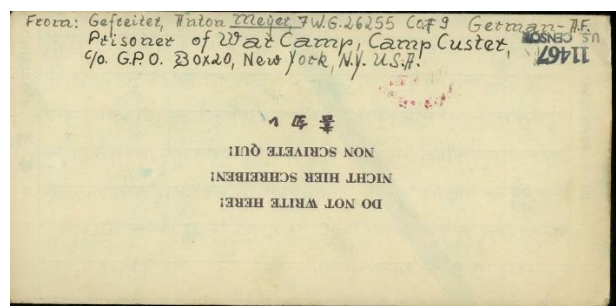 From: Gefreiter, Anton Meyer, 7 W.G. 26255 Co# 9 German-A.F.
Prisoner of War Camp, Camp Custer,
c/o. G.P.O. Box 20, New York, N.Y. U.S.A.
U.S. CENSOR
11467
DO NOT WRITE HERE!
NICHT HIER SCHREIBEN!
NON SCRIVETE QUI!